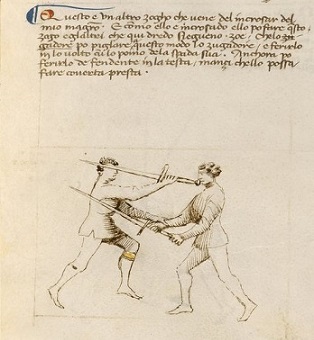 Questo è un altro zogho che vene del incrosar del
mio magro. E como ello è incrosado ello po fare q̃sto
zogo e gl'altri che qui dredo segueno. zoe. Chelo zu
gadore po pigliare questo modo lo zugadore, e ferirlo
in lo volto cū lo pomo dela spada sua. Anchora po
ferirlo de fendente in la testa, inanci chello possa
fare coverta presta.